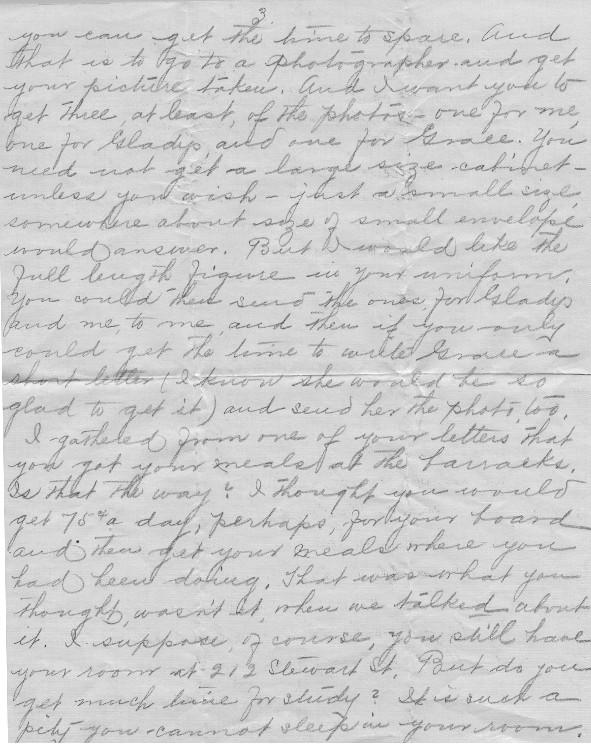 3
you can get the time to spare. And
that is to go to a photographer and get
your picture taken. And I want you to
get three, at least, of the photos - one for me,
one for Gladys and one for Grace. You
need not get a large size cabinet -
unless you wish - just a small size,
somewhere about size of small envelope
would answer. But I would like the
full length figure in your uniform.
You could then send the ones for Gladys
and me, to me, and then if you only
could get the time to write Grace a
short letter (I know she would be so
glad to get it) and send her the photo, too.
I gathered from one of your letters that
you got your meals at the barracks.
Is that the way? I thought you would
get 75¢ a day, perhaps, for your board
and then get your meals where you
had been doing. That was what you
thought, wasn't it, when we talked about
it. I suppose, of course, you still have
your room at 212 Stewart St. But do you
get much time for study? It is such a
pity you cannot sleep in your room.